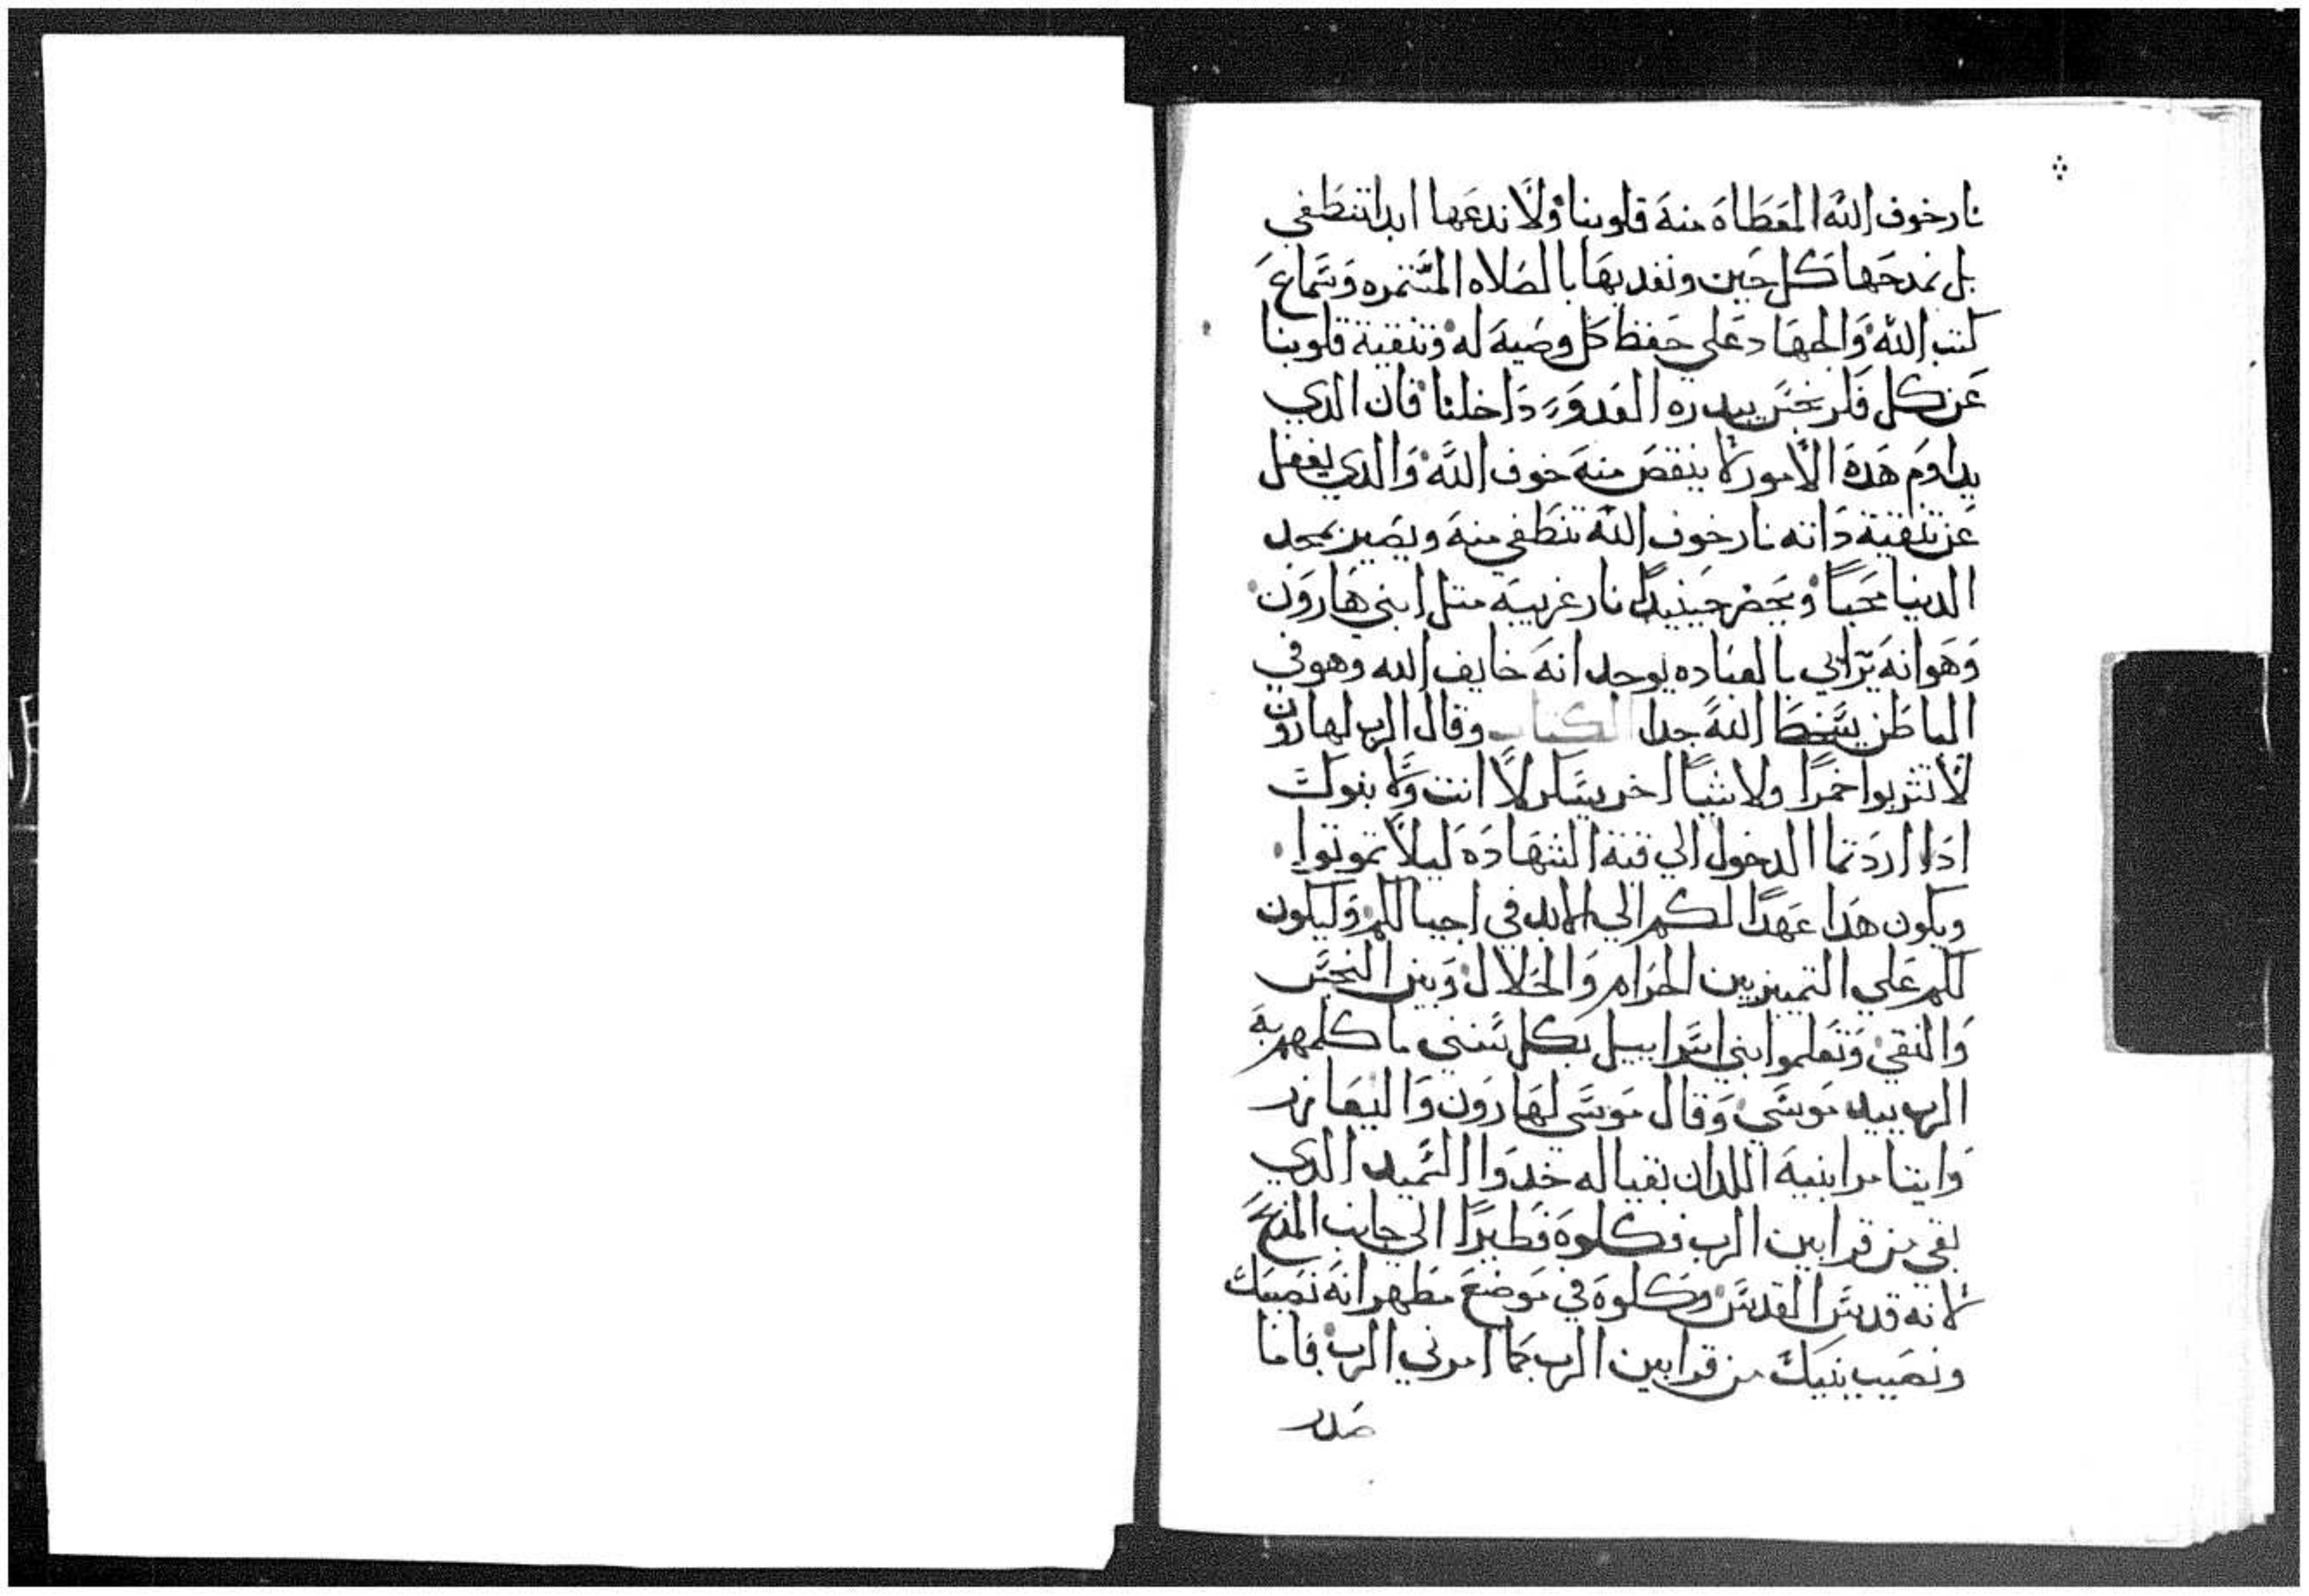 نار خوف الله المعطاه منه قلوبنا ولا ندعها ابدا تنطفي
بل نمدحها كل حين ونفديها بالصلاه المستمره وسماع
كتب الله والجهاد علي حفظ كل وصيه له وتنقية قلوبنا
عن كل فكر نجس يبدره العدو داخلنا فان الدي
يداوم هده الامور لا ينقص منه خوف الله والدي يغفل
عن تنقية داته نار خوف الله تنطفي منه ويصير بمجد
الدنيا محبا ويحضر حينيدا نار غريبه متل ابني هارون
وهو انه يرايي بالعباده يوجد انه خايف الله وهو في
الباطن يسخط الله جدا الكتاب وقال الرب لهارون
لا تشربوا خمرا ولا شيا اخر يسكر لا انت ولا بنوك
ادا اردتما الدخول الي قبة الشهاده ليلا تموتوا
ويكون هدا عهدا لكم الي الابد في اجيالكم وليكون
لكم علي التمييز بين الحرام والحلال وبين النجس
والنقي وتعلموا بني اسراييل بكل شي ما كلمهم به
الرب بيد موسي وقال موسي لهارون واليعازر
وايتامر ابنيه اللدان بقيا له خدوا السميد الدي
بقي من قرابين الرب فكلوه فطيرا الي جانب المذبح
لانه قدس القدس وكلوه في موضع مطهر انه نصيبك
ونصيب بنيك من قرابين الرب كما امرني الرب فاما
صدر